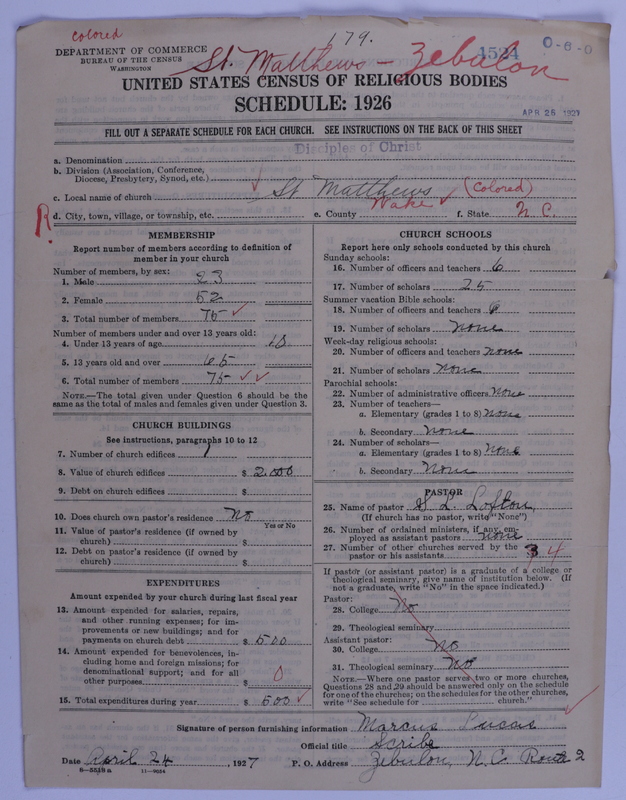 Colored
179.
4524
0-6-0
DEPARTMENT OF COMMERCE
BUREAU OF THE CENSUS
WASHINGTON
St. Matthews – Zebulon
UNITED STATES CENSUS OF RELIGIOUS BODIES
SCHEDULE: 1926
APR 26 1927
FILL OUT A SEPARATE SCHEDULE FOR EACH CHURCH. SEE INSTRUCTIONS ON THE BACK OF THIS SHEET
Disciples of Christ
a. Denomination
b. Division (Association, Conference, Diocese, Presbytery, Synod, etc.)
c. Local name of church St Matthews (Colored)
R. d. City, town, village, or township, etc. e. County Wake f. State N.C.
MEMBERSHIP
Report number of members according to definition of member in your church
Number of members, by sex:
1. Male 23
2. Female 52
3. Total number of members 75
Number of members under and over 13 years old:
4. Under 13 years of age 10
5. 13 years old and over 65
6. Total number of members 75
NOTE.—The total given under Question 6 should be the same as the total of males and females given under Question 3.
CHURCH BUILDINGS
See instructions, paragraphs 10 to 12
7. Number of church edifices 1
8. Value of church edifices $ 2000
9. Debt on church edifices $
10. Does church own pastor's residence No
Yes or No
11. Value of pastor's residence (if owned by church) $
12. Debt on pastor's residence (if owned by church) $
EXPENDITURES
Amount expended by your church during last fiscal year
13. Amount expended for salaries, repairs, and other running expenses; for improvements or new buildings; and for payments on church debt $ 500
14. Amount expended for benevolences, including home and foreign missions; for denominational support; and for all other purposes $ 0
15. Total expenditures during year $ 500
CHURCH SCHOOLS
Report here only schools conducted by this church
Sunday schools:
16. Number of officers and teachers 6
17. Number of scholars 25
Summer vacation Bible schools:
18. Number of officers and teachers
19. Number of scholars None
Week-day religious schools:
20. Number of officers and teachers None
21. Number of scholars None
Parochial schools:
22. Number of administrative officers None
23. Number of teachers—
a. Elementary (grades 1 to 8) None
b. Secondary None
24. Number of scholars—
a. Elementary (grades 1 to 8) None
b. Secondary None
PASTOR
25. Name of pastor S L. Lofton,
(If church has no pastor, write "None")
26. Number of ordained ministers, if any, employed as assistant pastors none
27. Number of other churches served by the pastor or his assistants 3 4
If pastor (or assistant pastor) is a graduate of a college or theological seminary, give name of institution below. (If not a graduate, write "No" in the space indicated.)
Pastor:
28. College No
29. Theological seminary
Assistant pastor:
30. College No
31. Theological seminary No
NOTE.—Where one pastor serves two or more churches, Questions 28 and 29 should be answered only on the schedule for one of the churches; on the schedules for the other churches, write "See schedule for church."
Signature of person furnishing information Marcus Lucas
Official title Scribe
Date April 24, 1927 P. O. Address Zebulon, N.C. Route 2
8—5518a 11—9054